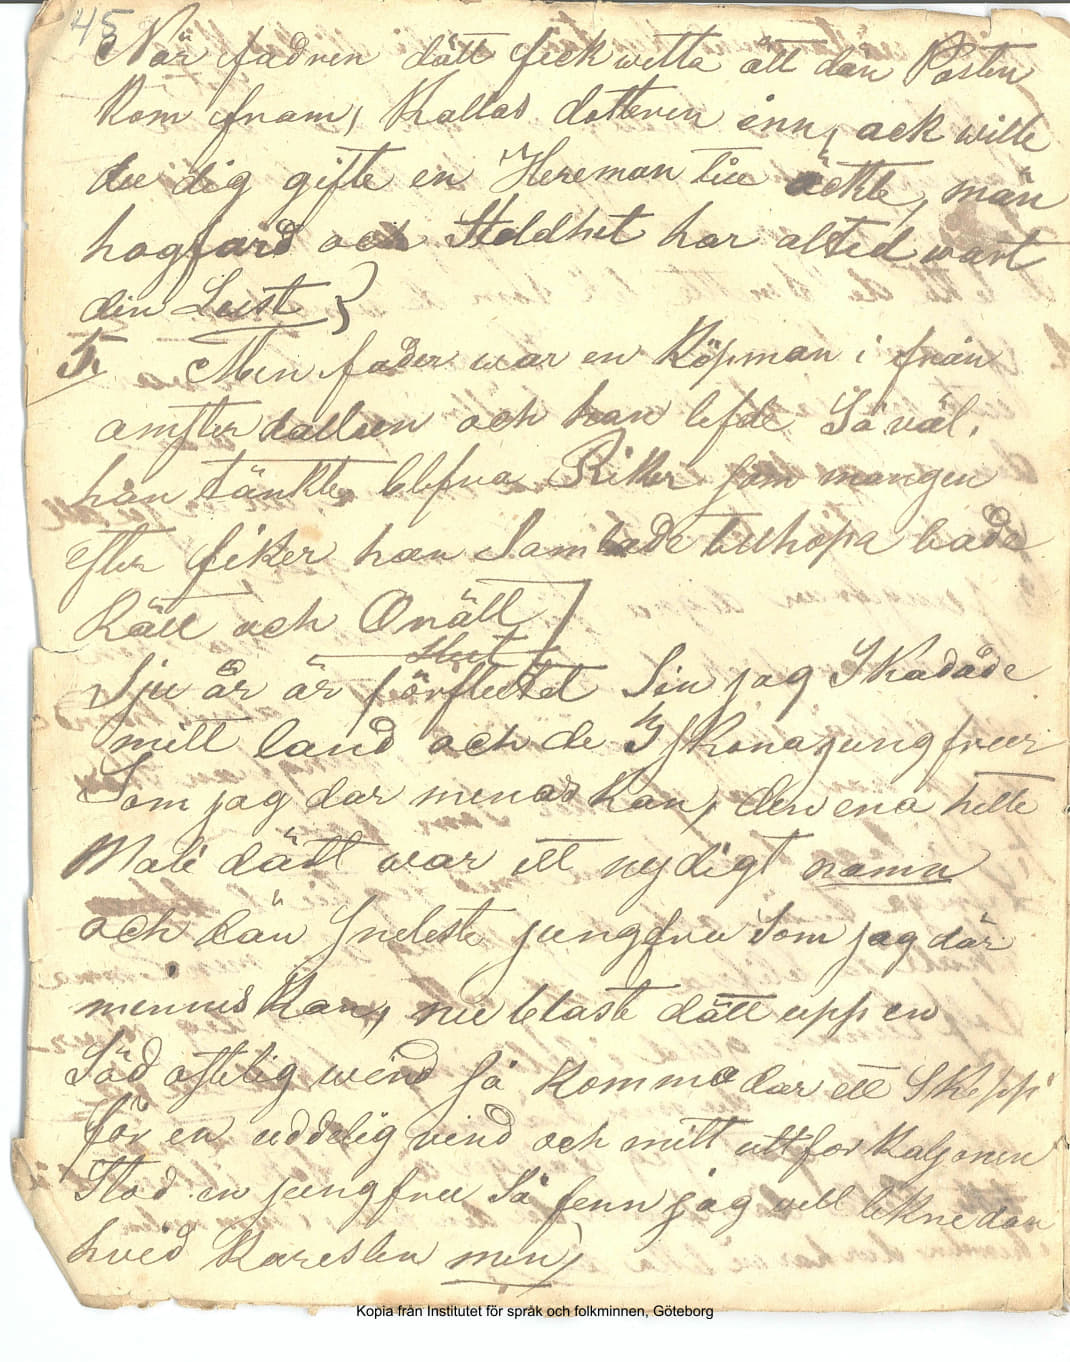 45
När fadren dätt fick wetta ätt dän Posten
Kom fram, Kallas dotteren inn, ack wille
du dig gifte en Hereman till äckte, män
hogfard och Stoldhet har alted wart
din Lust
5. Min fader war en Köpman i från
amsterdallen och han lefde Så väl.
hän tänkte blefva Riker som mangen
efter fiker han Samlade tillhopa bade
Rätt och Orätt
Slut
Sju år är förflutet Sin jag Skadåde
mitt land och de Sköna jungfrur
Som jag dar menas Kan, den ena hette
Mali dätt war ett nydigt namn
och dän Indeste jungfru Som jag där
minnus Kan, nu blaste dätt upp en
Söd ostelig wind så Komma dar ett Skepp
för en uddelig vind och mitt utt for Kaljonen
Stod en jungfru Så fenn jag vill likne dän
hved Karesten min
Kopia från Institutet för språk och folkminnen, Göteborg